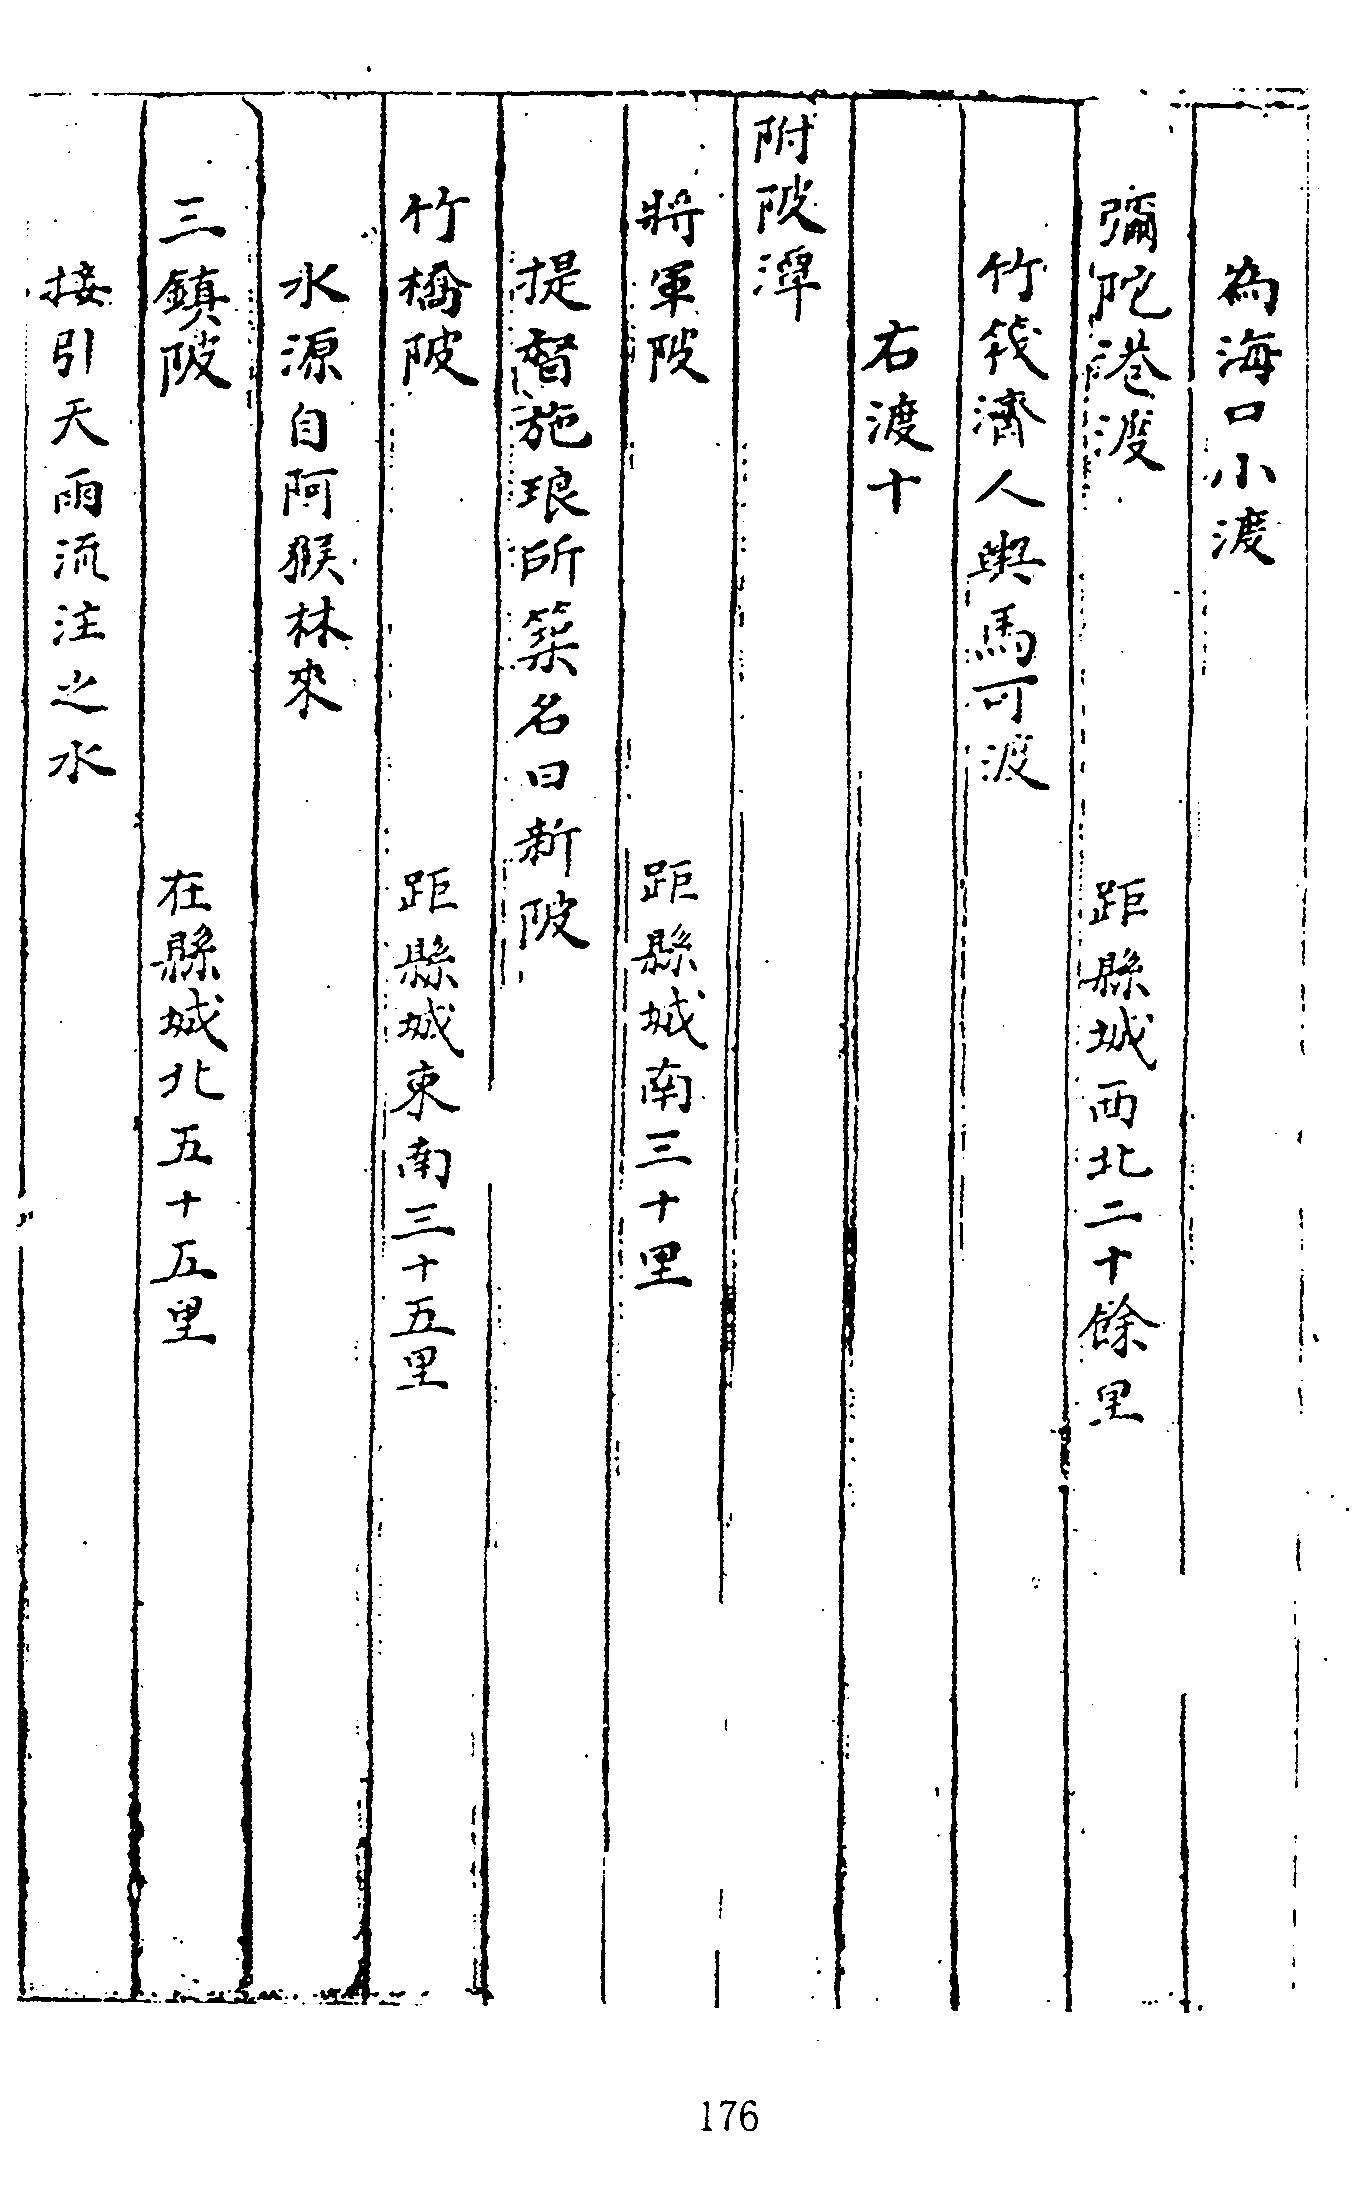 為海口小渡
彌陀港渡 距縣城西北二十餘里
竹筏濟人輿馬可渡
右渡十
附陂潭
將軍陂 距縣城南三十里
提督施琅所築名曰新陂
竹橋陂 距縣城東南三十五里
水源自阿猴林來
三鎮陂 在縣城北五十五里
接引天雨流注之水
176